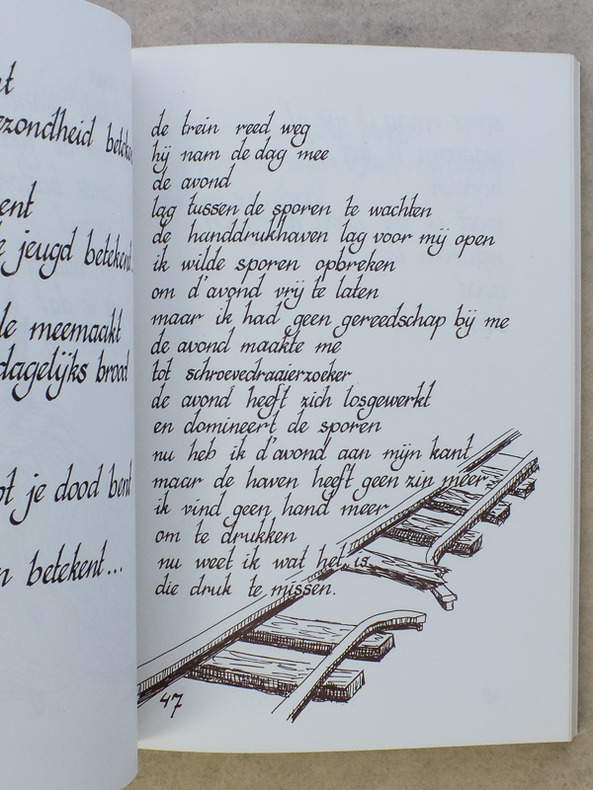 ezondheid
ent
e jeugd betekent
de meemaakt
dagelijks brood
je dood bent
betekent...
de trein reed weg
hij nam de dag mee
de avond
lag tussen de sporen te wachten
de handdrukhaven lag voor mij open
ik wilde sporen opbreken
om d'avond vrij te laten
maar ik had geen gereedschap bij me
de avond maakte me
tot schroevedraaierzoeker
de avond heeft zich losgewerkt
en domineert de sporen
nu heb ik d'avond aan mijn kant
maar de haven heeft geen zin meer
ik vind geen hand meer
om te drukken
nu weet ik wat het is
die druk te missen.
47